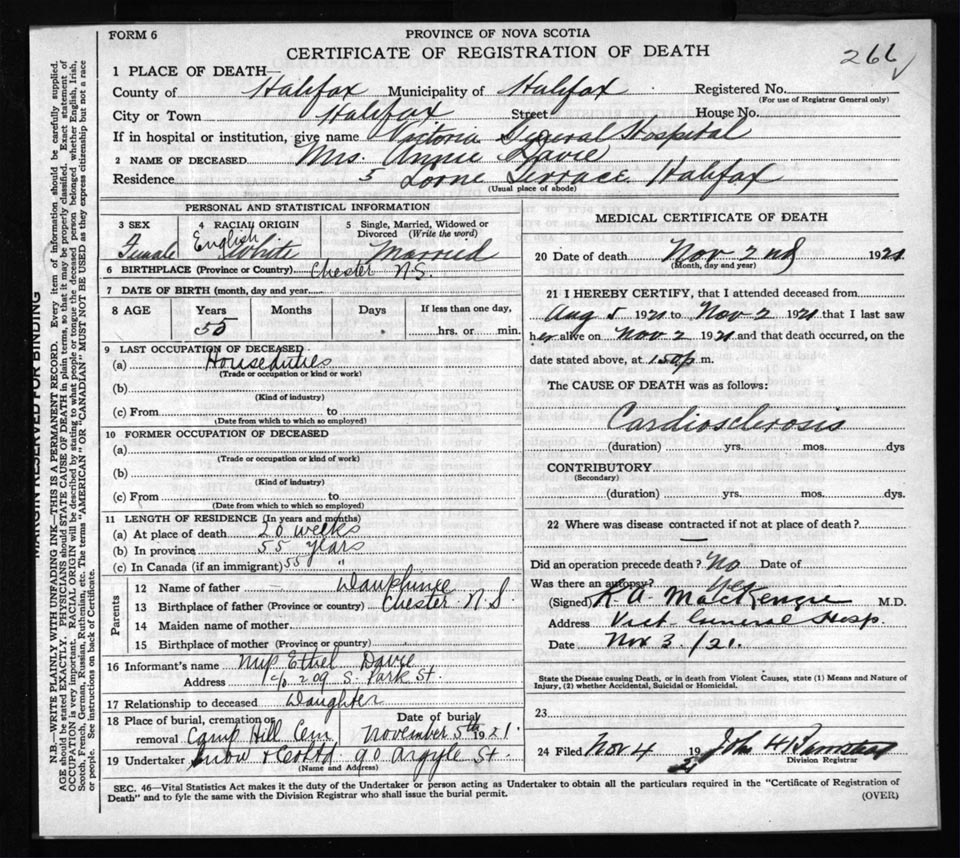 FORM 6
PROVINCE OF NOVA SCOTIA
CERTIFICATE OF REGISTRATION OF DEATH
266
1 PLACE OF DEATH—
County of Halifax Municipality of Halifax Registered No.
(For use of Registrar General only)
City or Town Halifax Street House No.
If in hospital or institution, give name Victoria General Hospital
2 NAME OF DECEASED Mrs. Annie Davie
Residence 5 Lorne Terrace Halifax
(Usual place of abode)
PERSONAL AND STATISTICAL INFORMATION
3 SEX Female
4 RACIAL ORIGIN English White
5 Single, Married, Widowed or Divorced (Write the word) Married
6 BIRTHPLACE (Province or Country) Chester N.S.
7 DATE OF BIRTH (month, day and year)
8 AGE Years Months Days If less than one day,
55 hrs. or min.
9 LAST OCCUPATION OF DECEASED
(a) Houseduties
(Trade or occupation or kind of work)
(b)
(Kind of industry)
(c) From to
(Date from which to which so employed)
10 FORMER OCCUPATION OF DECEASED
(a)
(Trade or occupation or kind of work)
(b)
(Kind of industry)
(c) From to
(Date from which to which so employed)
11 LENGTH OF RESIDENCE (In years and months)
(a) At place of death 20 weeks
(b) In province 55 years
(c) In Canada (if an immigrant) 55 "
Parents
12 Name of father Dauphinee
13 Birthplace of father (Province or country) Chester N.S.
14 Maiden name of mother
15 Birthplace of mother (Province or country)
16 Informant's name Miss Ethel Davie
Address c/o 209 S. Park St.
17 Relationship to deceased Daughter
18 Place of burial, cremation or removal Camp Hill Cem. Date of burial November 5th 1921.
19 Undertaker Snow & Co Ltd 90 Argyle St
(Name and Address)
MEDICAL CERTIFICATE OF DEATH
20 Date of death Nov 2nd 1921
(Month, day and year)
21 I HEREBY CERTIFY, that I attended deceased from
Aug 5 1921 to Nov 2 1921 that I last saw
her alive on Nov 2 1921 and that death occurred, on the
date stated above, at 1.50 p. m.
The CAUSE OF DEATH was as follows:
Cardiosclerosis
(duration) yrs. mos. dys
CONTRIBUTORY
(Secondary)
(duration) yrs. mos. dys.
22 Where was disease contracted if not at place of death?
—
Did an operation precede death? No Date of
Was there an autopsy? Yes
(Signed) K. A. MacKenzie M.D.
Address Vict. General Hosp.
Date Nov 3. /21.
State the Disease causing Death, or in death from Violent Causes, state (1) Means and Nature of
Injury, (2) whether Accidental, Suicidal or Homicidal.
23
24 Filed Nov 4 1921 John
Division Registrar
SEC. 46—Vital Statistics Act makes it the duty of the Undertaker or person acting as Undertaker to obtain all the particulars required in the "Certificate of Registration of
Death" and to fyle the same with the Division Registrar who shall issue the burial permit.
(OVER)
MARGIN RESERVED FOR BINDING
N.B.—WRITE PLAINLY WITH UNFADING INK—THIS IS A PERMANENT RECORD. Every item of information should be carefully supplied.
AGE should be stated EXACTLY. PHYSICIANS should STATE CAUSE OF DEATH in plain terms, so that it may be properly classified. Exact statement of
OCCUPATION is very important. RACIAL ORIGIN will be described by stating to what people or tongue the deceased person belonged whether English, Irish,
Scotch, French, German, Russian, Ruthenian, etc. The terms "AMERICAN" OR "CANADIAN" MUST NOT BE USED as they express citizenship but not a race
or people. See instructions on back of Certificate.